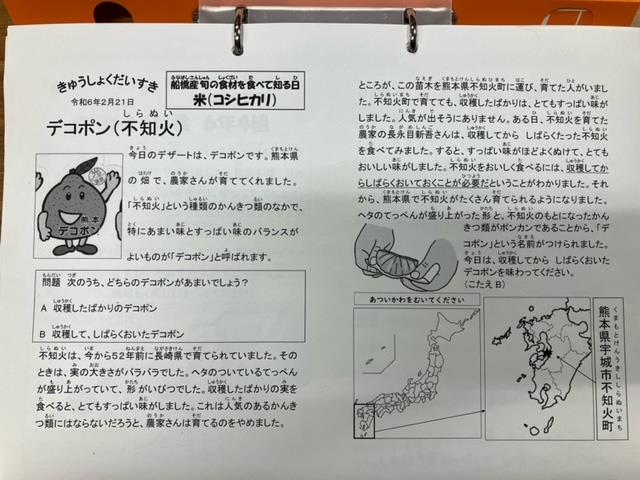 きゅうしょくだいすき
令和6年2月21日
船橋産旬の食材を食べて知る日
米(コシヒカリ)
デコポン(不知火)
今日のデザートは、デコポンです。熊本県
の畑で、農家さんが育ててくれました。
「不知火」という種類のかんきつ類のなかで、
特にあまい味とすっぱい味のバランスが
よいものが「デコポン」と呼ばれます。
熊本
デコポン
問題 次のうち、どちらのデコポンがあまいでしょう?
A 収穫したばかりのデコポン
B 収穫して、しばらくおいたデコポン
不知火は、今から52年前に長崎県で育てられていました。その
ときは、実の大きさがバラバラでした。ヘタのついているてっぺ
んが盛り上がっていて、形がいびつでした。収穫したばかりの実を
食べると、とてもすっぱい味がしました。これは人気のあるかんき
つ類にはならないだろうと、農家さんは育てるのをやめました。
ところが、この苗木を熊本県不知火町に運び、育てた人がいまし
た。不知火町で育てても、収穫したばかりは、とてもすっぱい味が
しました。人気が出そうにありません。ある日、不知火を育てた
農家の長永目新吾さんは、収穫してから しばらくたった不知火
を食べてみました。すると、すっぱい味がほどよくぬけて、とても
おいしい味がしました。不知火をおいしく食べるには、収穫してか
らしばらくおいておくことが必要だということがわかりました。それ
から、熊本県で不知火がたくさん育てられるようになりました。
ヘタのてっぺんが盛り上がった形と、不知火のもとになったかん
きつ類がポンカンであることから、「デ
コポン」という名前がつけられました。
今日は、収穫してから しばらくおいた
デコポンを味わってください。
(こたえB)
あついかわをむいてください
熊本県宇城市不知火町